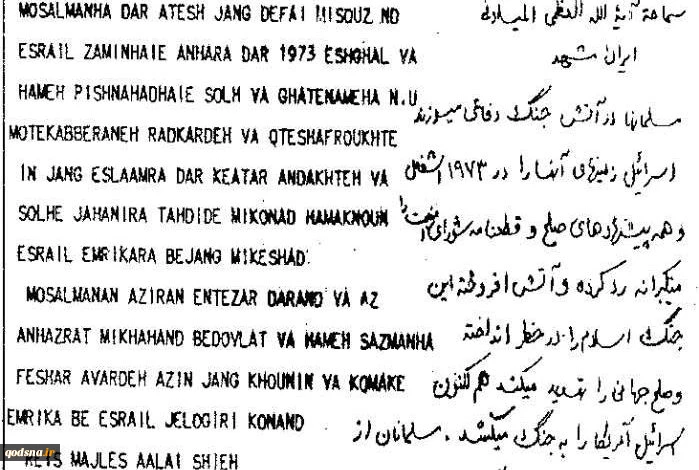 MOSALMANHA DAR ATESH JANG DEFAI MISOUZ ND
ESRAIL ZAMINHAIE ANHARA DAR 1973 ESHGHAL VA
HAMEH PISHNAHADHAIE SOLH VA GHATENAMEHA N.U
MOTEKABBERANEH RADKARDEH VA QTESHAFROUKHTE
IN JANG ESLAAMRA DAR KEATAR ANDAKHTEH VA
SOLHE JAHANIRA TAHDIDE MIKONAD HAMAKNOUN
ESRAIL EMRIKARA BEJANG MIKESHAD.
MOSALMANAN AZIRAN ENTEZAR DARAND VA AZ
ANHAZRAT MIKHAHAND BEDOVLAT VA HAMEH SAZMANHA
FESHAR AVARDEH AZIN JANG KHOUNIN VA KOMAKE
EMRIKA BE ESRAIL JELOGIRI KONAND
REIS MAJLES AALAI SHIEH
سماحة آية الله العظمى الميلاني
ايران مشهد
مسلمانها در آتش جنگ دفاعی میسوزند
اسرائیل زمینهای آنها را در ۱۹۷۳ اشغال
و همه پیشنهادهای صلح و قطعنامه شورای امنیت را
متکبرانه رد کرده و آتش افروخته این
جنگ اسلام را در خطر انداخته
و صلح جهانی را تهدید میکند هم اکنون
اسرائیل آمریکا را به جنگ میکشد . مسلمانان از
qodsna.ir